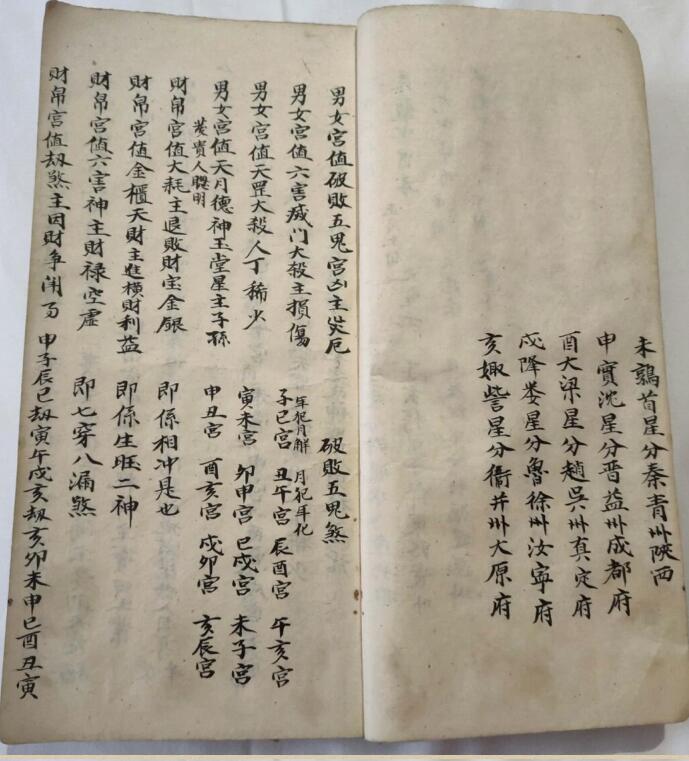 未鶉首星分秦青州陝西
申實沈星分晋益州成都府
酉大梁星分趙吳州真定府
戌降娄星分魯徐州汝寧府
亥娵訾星分衞并州大原府
男女宫值破敗五鬼宫凶主災厄
破敗五鬼煞
男女宫值六害滅门大殺主損傷
年犯月解 月犯年化
子巳宫 丑午宫 辰酉宫 午亥宫
男女宫值天罡大殺人丁稀少
寅未宫 卯申宫 巳戌宫 未子宫
男女宫值天月德神玉堂星主子孫
發貴人聰明
申丑宫 酉亥宫 戌卯宫 亥辰宫
財帛宫值大耗主退敗財宝金銀
即係相冲是也
財帛宫值金櫃天財主進横財利益
即係生旺二神
財帛宫值六害神主財禄空虚
即七穿八漏煞
財帛宫值劫煞主因財争闹 申子辰巳劫寅午戌亥劫亥卯未申巳酉丑寅